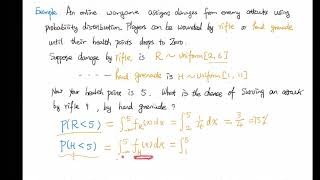 Example: An online wargame assigns damages from enemy attacks using
probability distribution. Players can be wounded by rifle or hand grenade
until their health points drops to zero.
Suppose damage by rifle is R ~ Uniform[2, 6]
hand grenade is H ~ Uniform[1, 11]
Now your health point is 5. What is the chance of surviving an attack
by rifle ? , by hand grenade ?
P(R<5) = ∫_{-∞}^{5} f_R(x)dx = ∫_2^5 1/4 dx = 3/4 = 75%
P(H<5) = ∫_{-∞}^{5} f_H(x)dx = ∫_1^5